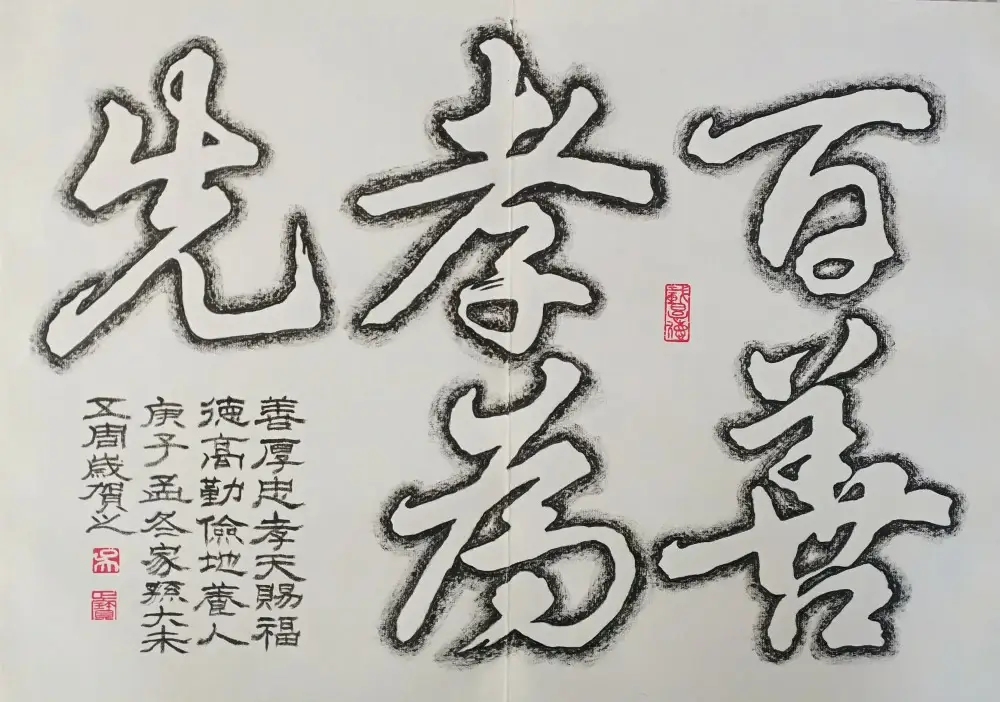 百善
孝為
先
善厚忠孝天賜福
德高勤儉地養人
庚子孟冬家孫大未
五周歲賀之